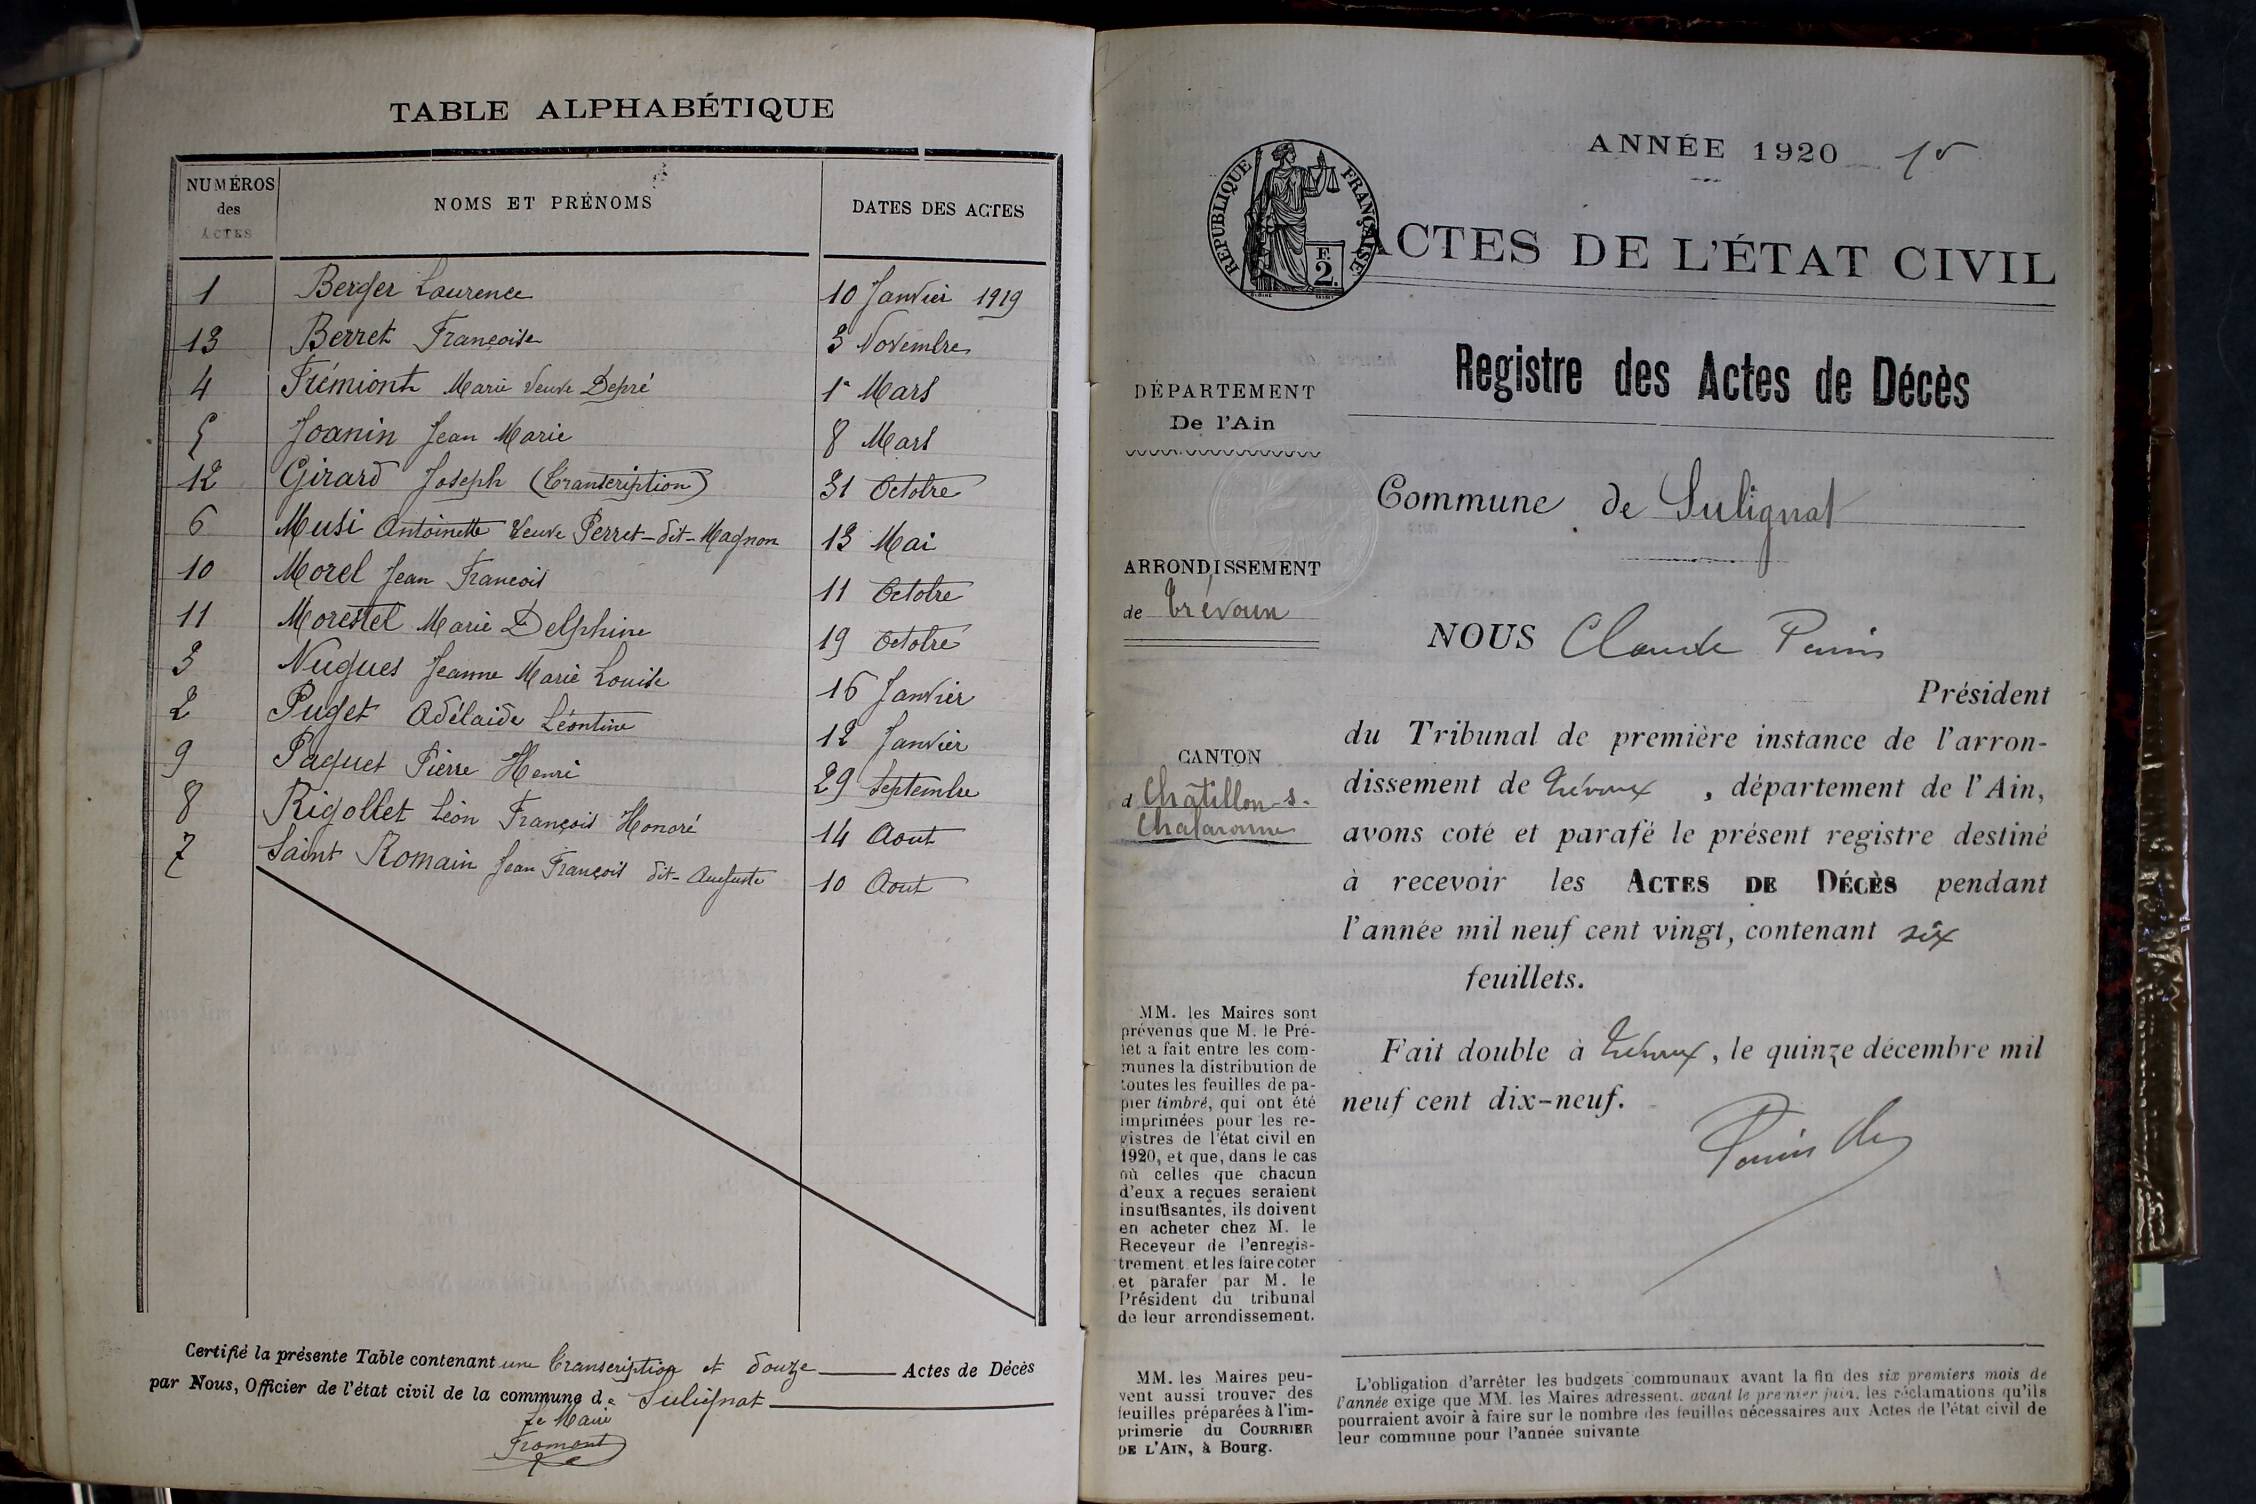 TABLE ALPHABÉTIQUE
NUMÉROS des ACTES NOMS ET PRÉNOMS DATES DES ACTES
1 Berger Laurence 10 Janvier 1919
13 Berret Françoise 3 Novembre
4 Frémiont Marie Veuve Depré 1er Mars
5 Joanin Jean Marie 8 Mars
12 Girard Joseph (Transcription) 31 Octobre
6 Musi Antoinette Veuve Perret-dit-Magnon 13 Mai
10 Morel Jean François 11 Octobre
11 Morestel Marie Delphine 19 Octobre
3 Nugues Jeanne Marie Louise 16 Janvier
2 Puget Adélaïde Léontine 12 Janvier
9 Paquet Pierre Henri 29 Septembre
8 Rigollet Léon François Honoré 14 Aout
7 Saint Romain Jean François dit-Auguste 10 Aout
Certifié la présente Table contenant une Transcription et douze Actes de Décès
par Nous, Officier de l'état civil de la commune de Sulignat
Le Maire
Fromont
ANNÉE 1920
RÉPUBLIQUE FRANÇAISE
F. 2.
ACTES DE L'ÉTAT CIVIL
Registre des Actes de Décès
DÉPARTEMENT
De l'Ain
Commune de Sulignat
ARRONDISSEMENT
de Trévoux
CANTON
d Châtillon-s-
Chalaronne
NOUS Claude
Président
du Tribunal de première instance de l'arron-
dissement de Trévoux, département de l'Ain,
avons coté et parafé le présent registre destiné
à recevoir les ACTES DE DÉCÈS pendant
l'année mil neuf cent vingt, contenant six
feuillets.
Fait double à Trévoux, le quinze décembre mil
neuf cent dix-neuf.
MM. les Maires sont
prévenus que M. le Pré-
fet a fait entre les com-
munes la distribution de
toutes les feuilles de pa-
pier timbré, qui ont été
imprimées pour les re-
gistres de l'état civil en
1920, et que, dans le cas
où celles que chacun
d'eux a reçues seraient
insuffisantes, ils doivent
en acheter chez M. le
Receveur de l'enregis-
trement et les faire coter
et parafer par M. le
Président du tribunal
de leur arrondissement.
MM. les Maires peu-
vent aussi trouver des
feuilles préparées à l'im-
primerie du COURRIER
DE L'AIN, à Bourg.
L'obligation d'arrêter les budgets communaux avant la fin des six premiers mois de
l'année exige que MM. les Maires adressent, avant le premier juin, les réclamations qu'ils
pourraient avoir à faire sur le nombre des feuilles nécessaires aux Actes de l'état civil de
leur commune pour l'année suivante